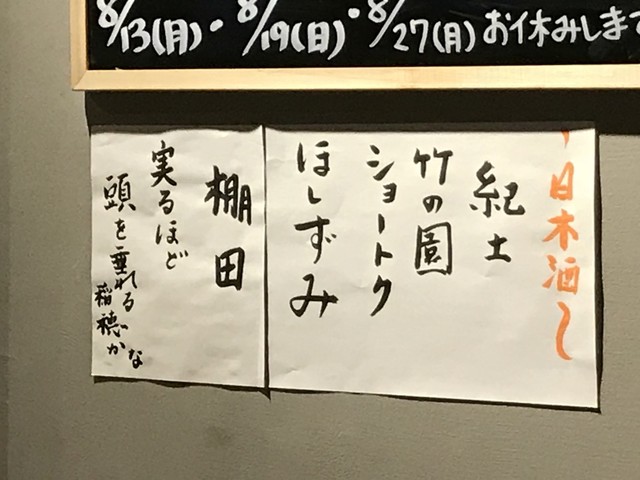 8/13(月)・8/19(日)・8/27(月)お休みします
～日本酒～
紀土
竹の園
ショートク
ほしずみ
棚田
実るほど
頭を垂れる
稲穂かな